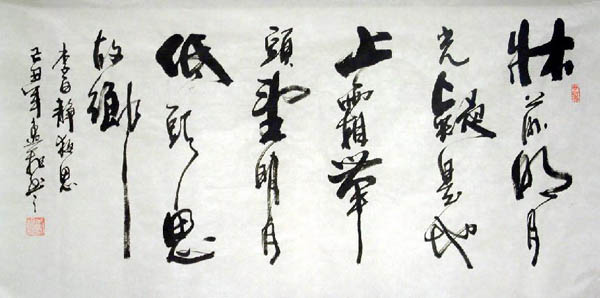 牀前明月
光疑是地
上霜舉
頭望明月
低頭思
故鄉
李白静夜思
己丑年